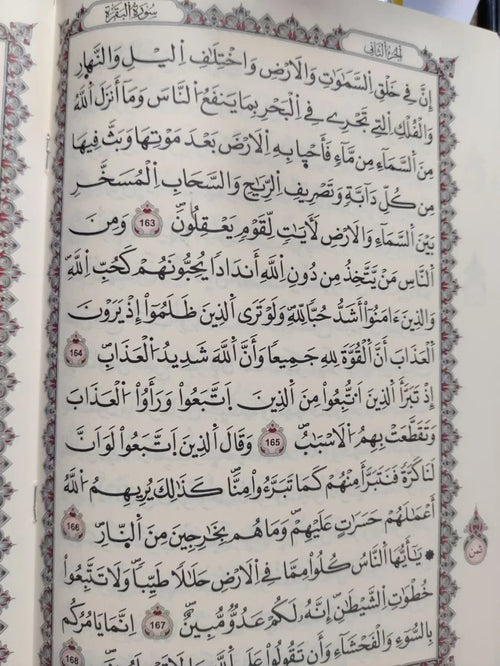 سُورَةُ الْبَقَرَة
الجزء الثاني
إِنَّ فِي خَلْقِ اِ۬لسَّمَٰوَٰتِ وَالَارْضِ وَاخْتِلَٰفِ اِ۬ليْلِ وَالنَّهارِ
وَالْفُلْكِ اِ۬لتِي تَجْرِي فِي اِ۬لْبَحْرِ بِمَا يَنفَعُ اُ۬لنَّاسَ وَمَا أَنزَلَ اَ۬للَّهُ
مِنَ اَ۬لسَّمَآءِ مِن مَّآءٍ فَأَحْيا بِهِ اِ۬لَارْضَ بَعْدَ مَوْتِهَا وَبَثَّ فِيهَا
مِن كُلِّ دَآبَّةٍ وَتَصْرِيفِ اِ۬لرِّيَٰحِ وَالسَّحَابِ اِ۬لْمُسَخَّرِ
بَيْنَ اَ۬لسَّمَآءِ وَالَارْضِ لَأٓيَٰتٍ لِّقَوْمٍ يَعْقِلُونَ 163 وَمِنَ
اَ۬لنَّاسِ مَنْ يَّتَّخِذُ مِن دُونِ اِ۬للَّهِ أَندَادًا يُحِبُّونَهُمْ كَحُبِّ اِ۬للَّهِ
وَالذِينَ ءَامَنُوٓاْ أَشَدُّ حُبًّا لِّلهِ وَلَوْ تَرَى اَ۬لذِينَ ظَلَمُوٓاْ إِذْ يَرَوْنَ
اَ۬لْعَذَابَ أَنَّ اَ۬لْقُوَّةَ لِلهِ جَمِيعًا وَأَنَّ اَ۬للَّهَ شَدِيدُ اُ۬لْعَذَابِ 164
إِذْ تَبَرَّأَ اَ۬لذِينَ اَ۟تُّبِعُواْ مِنَ اَ۬لذِينَ اَ۪تَّبَعُواْ وَرَأَوُاْ اُ۬لْعَذَابَ
وَتَقَطَّعَتْ بِهِمُ اُ۬لَاسْبَٰبُ 165 وَقَالَ اَ۬لذِينَ اَ۪تَّبَعُواْ لَوَ اَنَّ
لَنَا كَرَّةً فَنَتَبَرَّأَ مِنْهُمْ كَمَا تَبَرَّءُواْ مِنَّا كَذَٰلِكَ يُرِيهِمُ اُ۬للَّهُ
أَعْمَٰلَهُمْ حَسَرَٰتٍ عَلَيْهِمْ وَمَا هُم بِخَٰرِجِينَ مِنَ اَ۬لنّ۪ارِ 166
۞ يَٰٓأَيُّهَا اَ۬لنَّاسُ كُلُواْ مِمَّا فِي اِ۬لَارْضِ حَلَٰلًا طَيِّبًا وَلَا تَتَّبِعُواْ
ثمن
خُطْوَٰتِ اِ۬لشَّيْطَٰنِ إِنَّهُۥ لَكُمْ عَدُوٌّ مُّبِينٌ 167 اِنَّمَا يَامُرُكُم
بِالسُّوٓءِ وَالْفَحْشَآءِ وَأَن تَقُولُواْ عَلَى 168